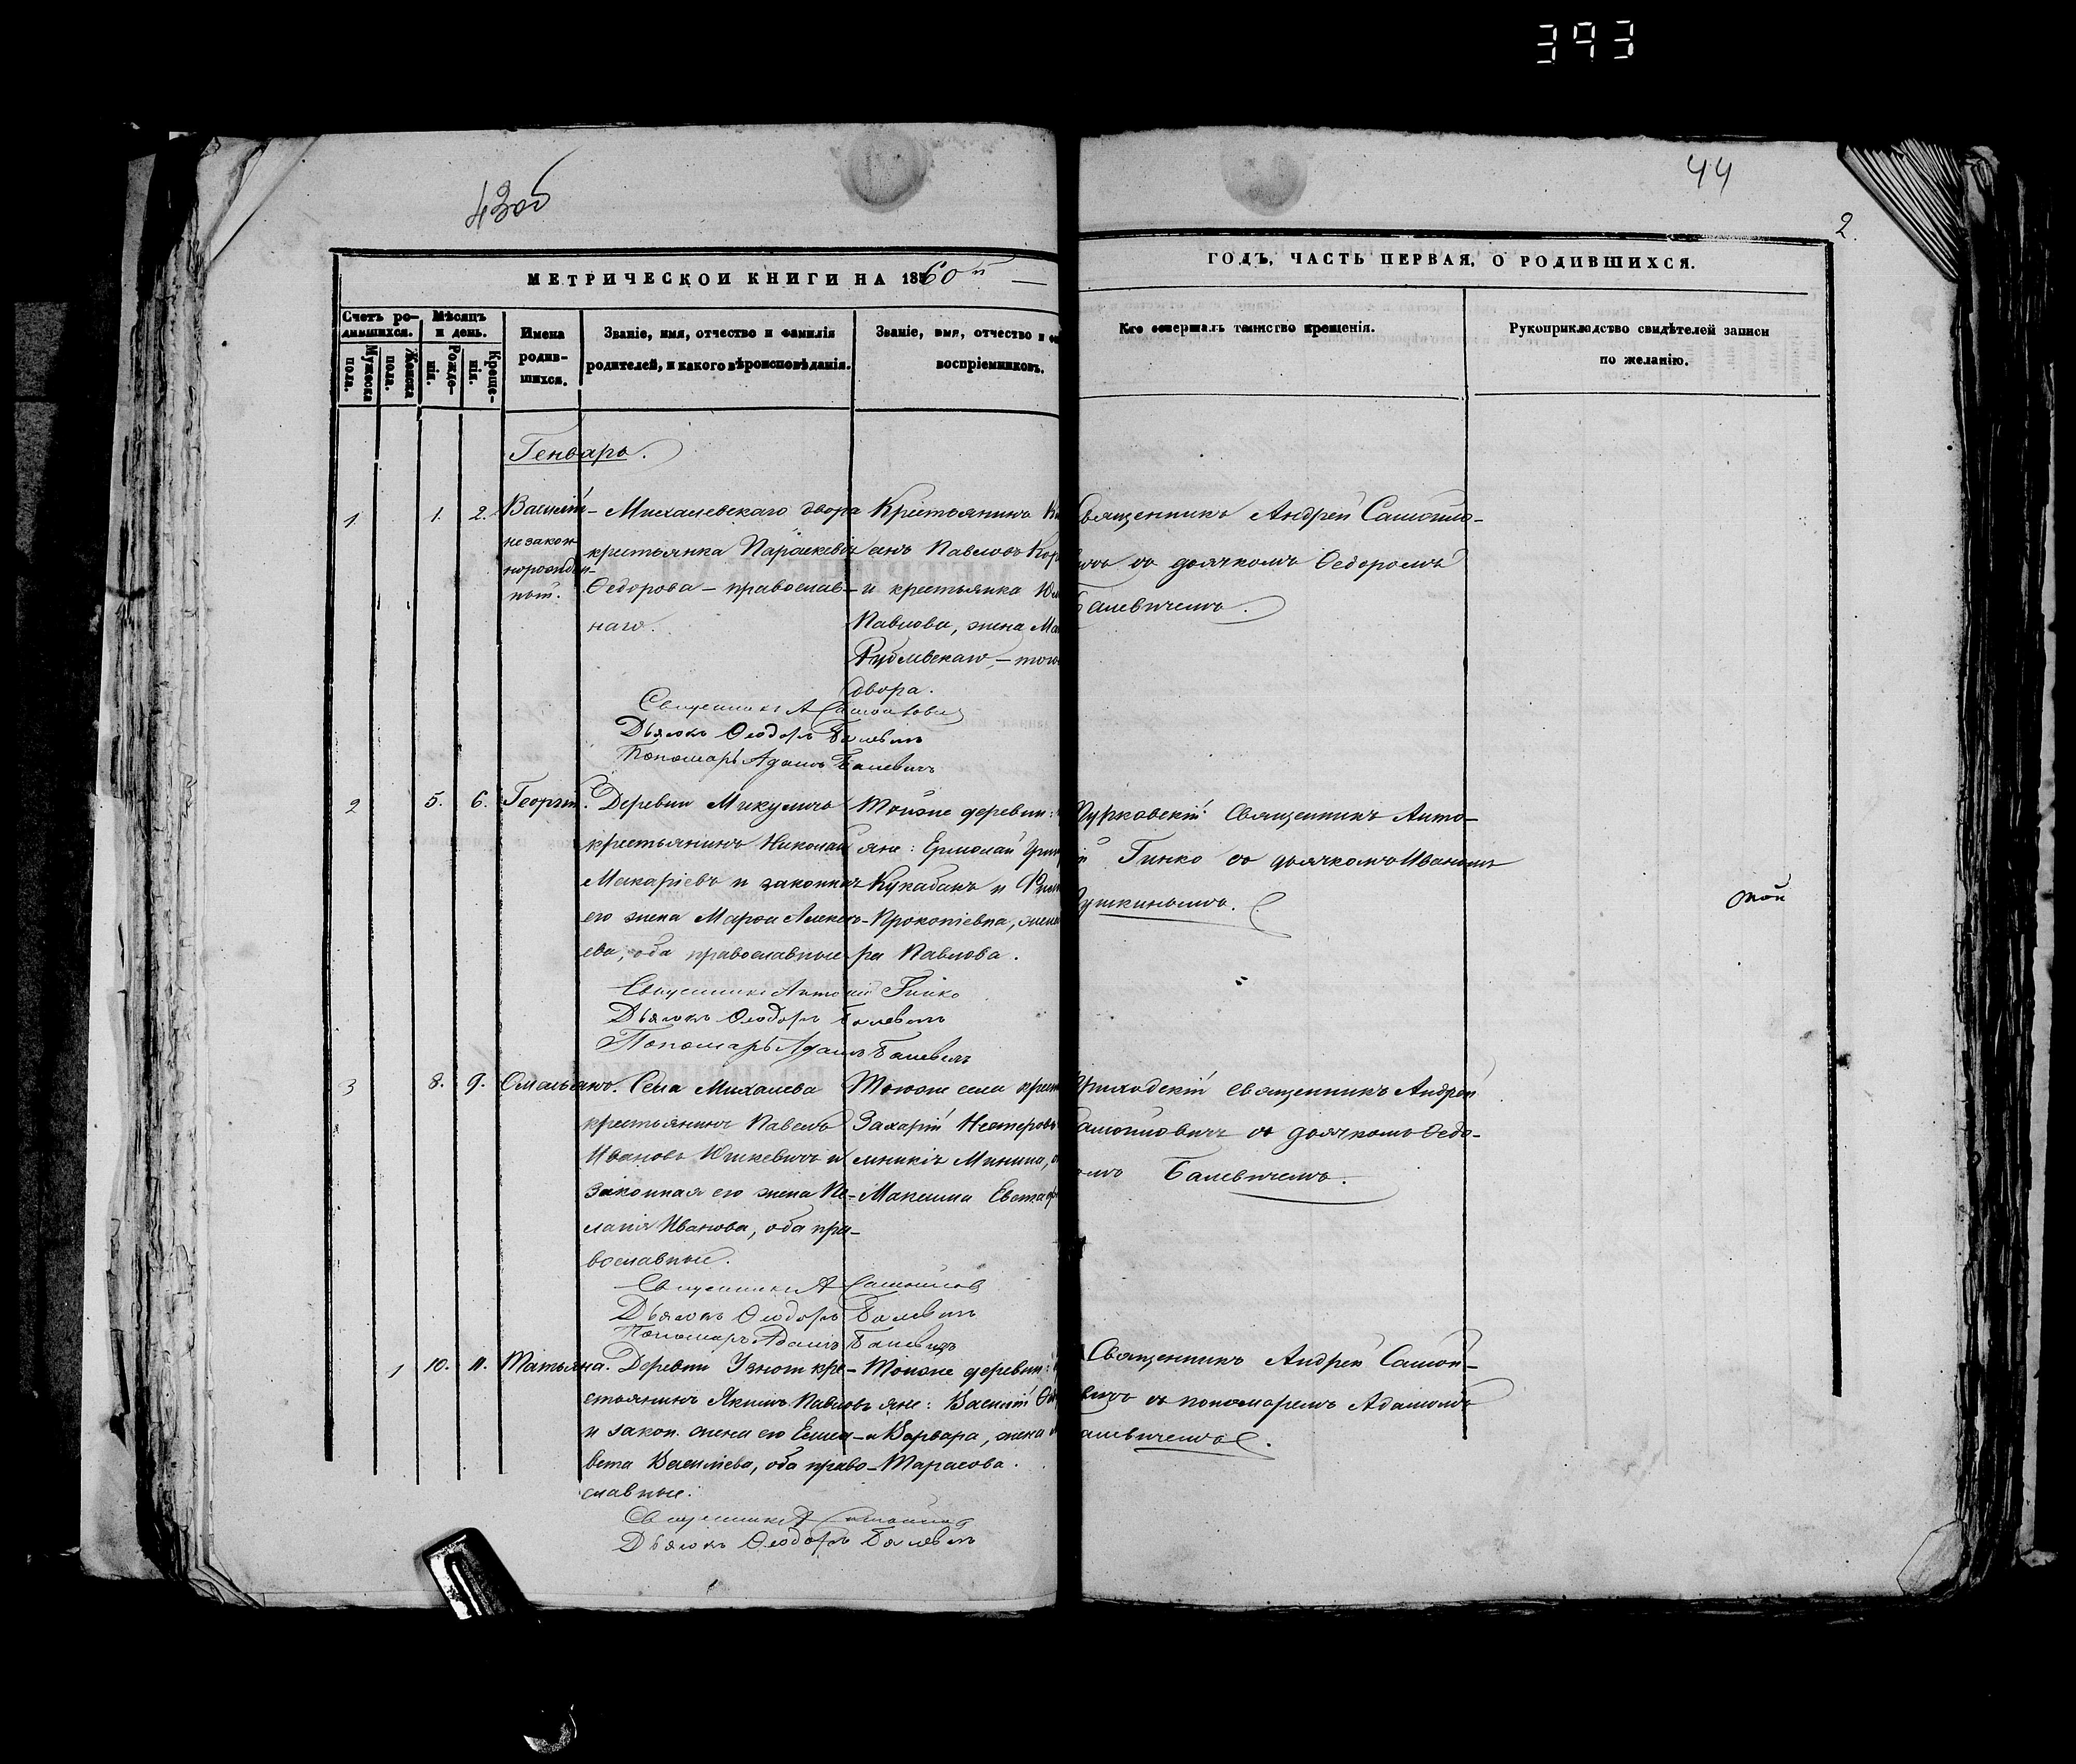 393
43об
44
2.
МЕТРИЧЕСКОЙ КНИГИ НА 1860й
ГОДЪ, ЧАСТЬ ПЕРВАЯ, О РОДИВШИХСЯ.
Счетъ родившихся.
Мужеска пола.
Женска пола.
Мѣсяцъ и день.
Рожденія.
Крещенія.
Имена родившихся.
Званіе, имя, отчество и фамилія
родителей, и какого вѣроисповѣданія.
Званіе, имя, отчество и
воспріемниковъ.
Кто совершалъ таинство крещенія.
Рукоприкладство свидѣтелей записи
по желанію.
Генварь.
1 1. 2.
Василій
незакон
норожден-
ный.
Михалевскаго двора
крестьянка Параскевія
Ѳедорова – православ-
наго.
Крестьянинъ
анъ Павловъ
и крестьянка
Павлова, жена
двора.
Священникъ Андрей Самойло-
вичъ съ дьячкомъ Ѳедоромъ
Балевичемъ.
Священникъ А Самойлович
Дьячокъ Ѳеодоръ Балевичъ
Пономарь Адамъ Балевичъ
2 5. 6. Георгій.
Деревни Микуличъ
крестьянинъ Николай
Макаріевъ и законная
его жена Марѳа Алексѣ-
ева, оба православные
Тойже деревни:
яне: Ермолай
Кукабакъ и
Прокопіевна, жена
ра Павлова.
Священникъ Анто-
й Гинко съ дьячкомъ Иваномъ
ушкинымъ.
той
Священникъ Антоній Гинко
Дьячокъ Ѳеодоръ Балевичъ
Пономарь Адамъ Балевичъ
3 8. 9. Омельянъ.
Села Михалева
крестьянинъ Павелъ
Ивановъ Юшкевичъ и
законная его жена Пе-
лагія Иванова, оба пра-
вославные.
Тогоже села
Захарій Нестеровъ
Минина,
Максима
Приходскій священникъ Андрей
Самойловичъ съ дьячкомъ Ѳедо-
омъ Балевичемъ.
Священникъ А Самойлов
Дьячокъ Ѳеодоръ Балевичъ
Пономарь Адамъ Балевичъ
1 10. 11. Татьяна.
Деревни Узнож кре-
стьянинъ Якимъ Павловъ
и закон. жена его Елиса-
вета Василіева, оба право-
славные.
Тойже деревни:
яне: Василій
и Варвара, жена
Тарасова.
Священникъ Андрей Самой-
вичъ съ пономаремъ Адамомъ
алевичемъ.
Священникъ А Самойлов
Дьячокъ Ѳеодоръ Балевичъ